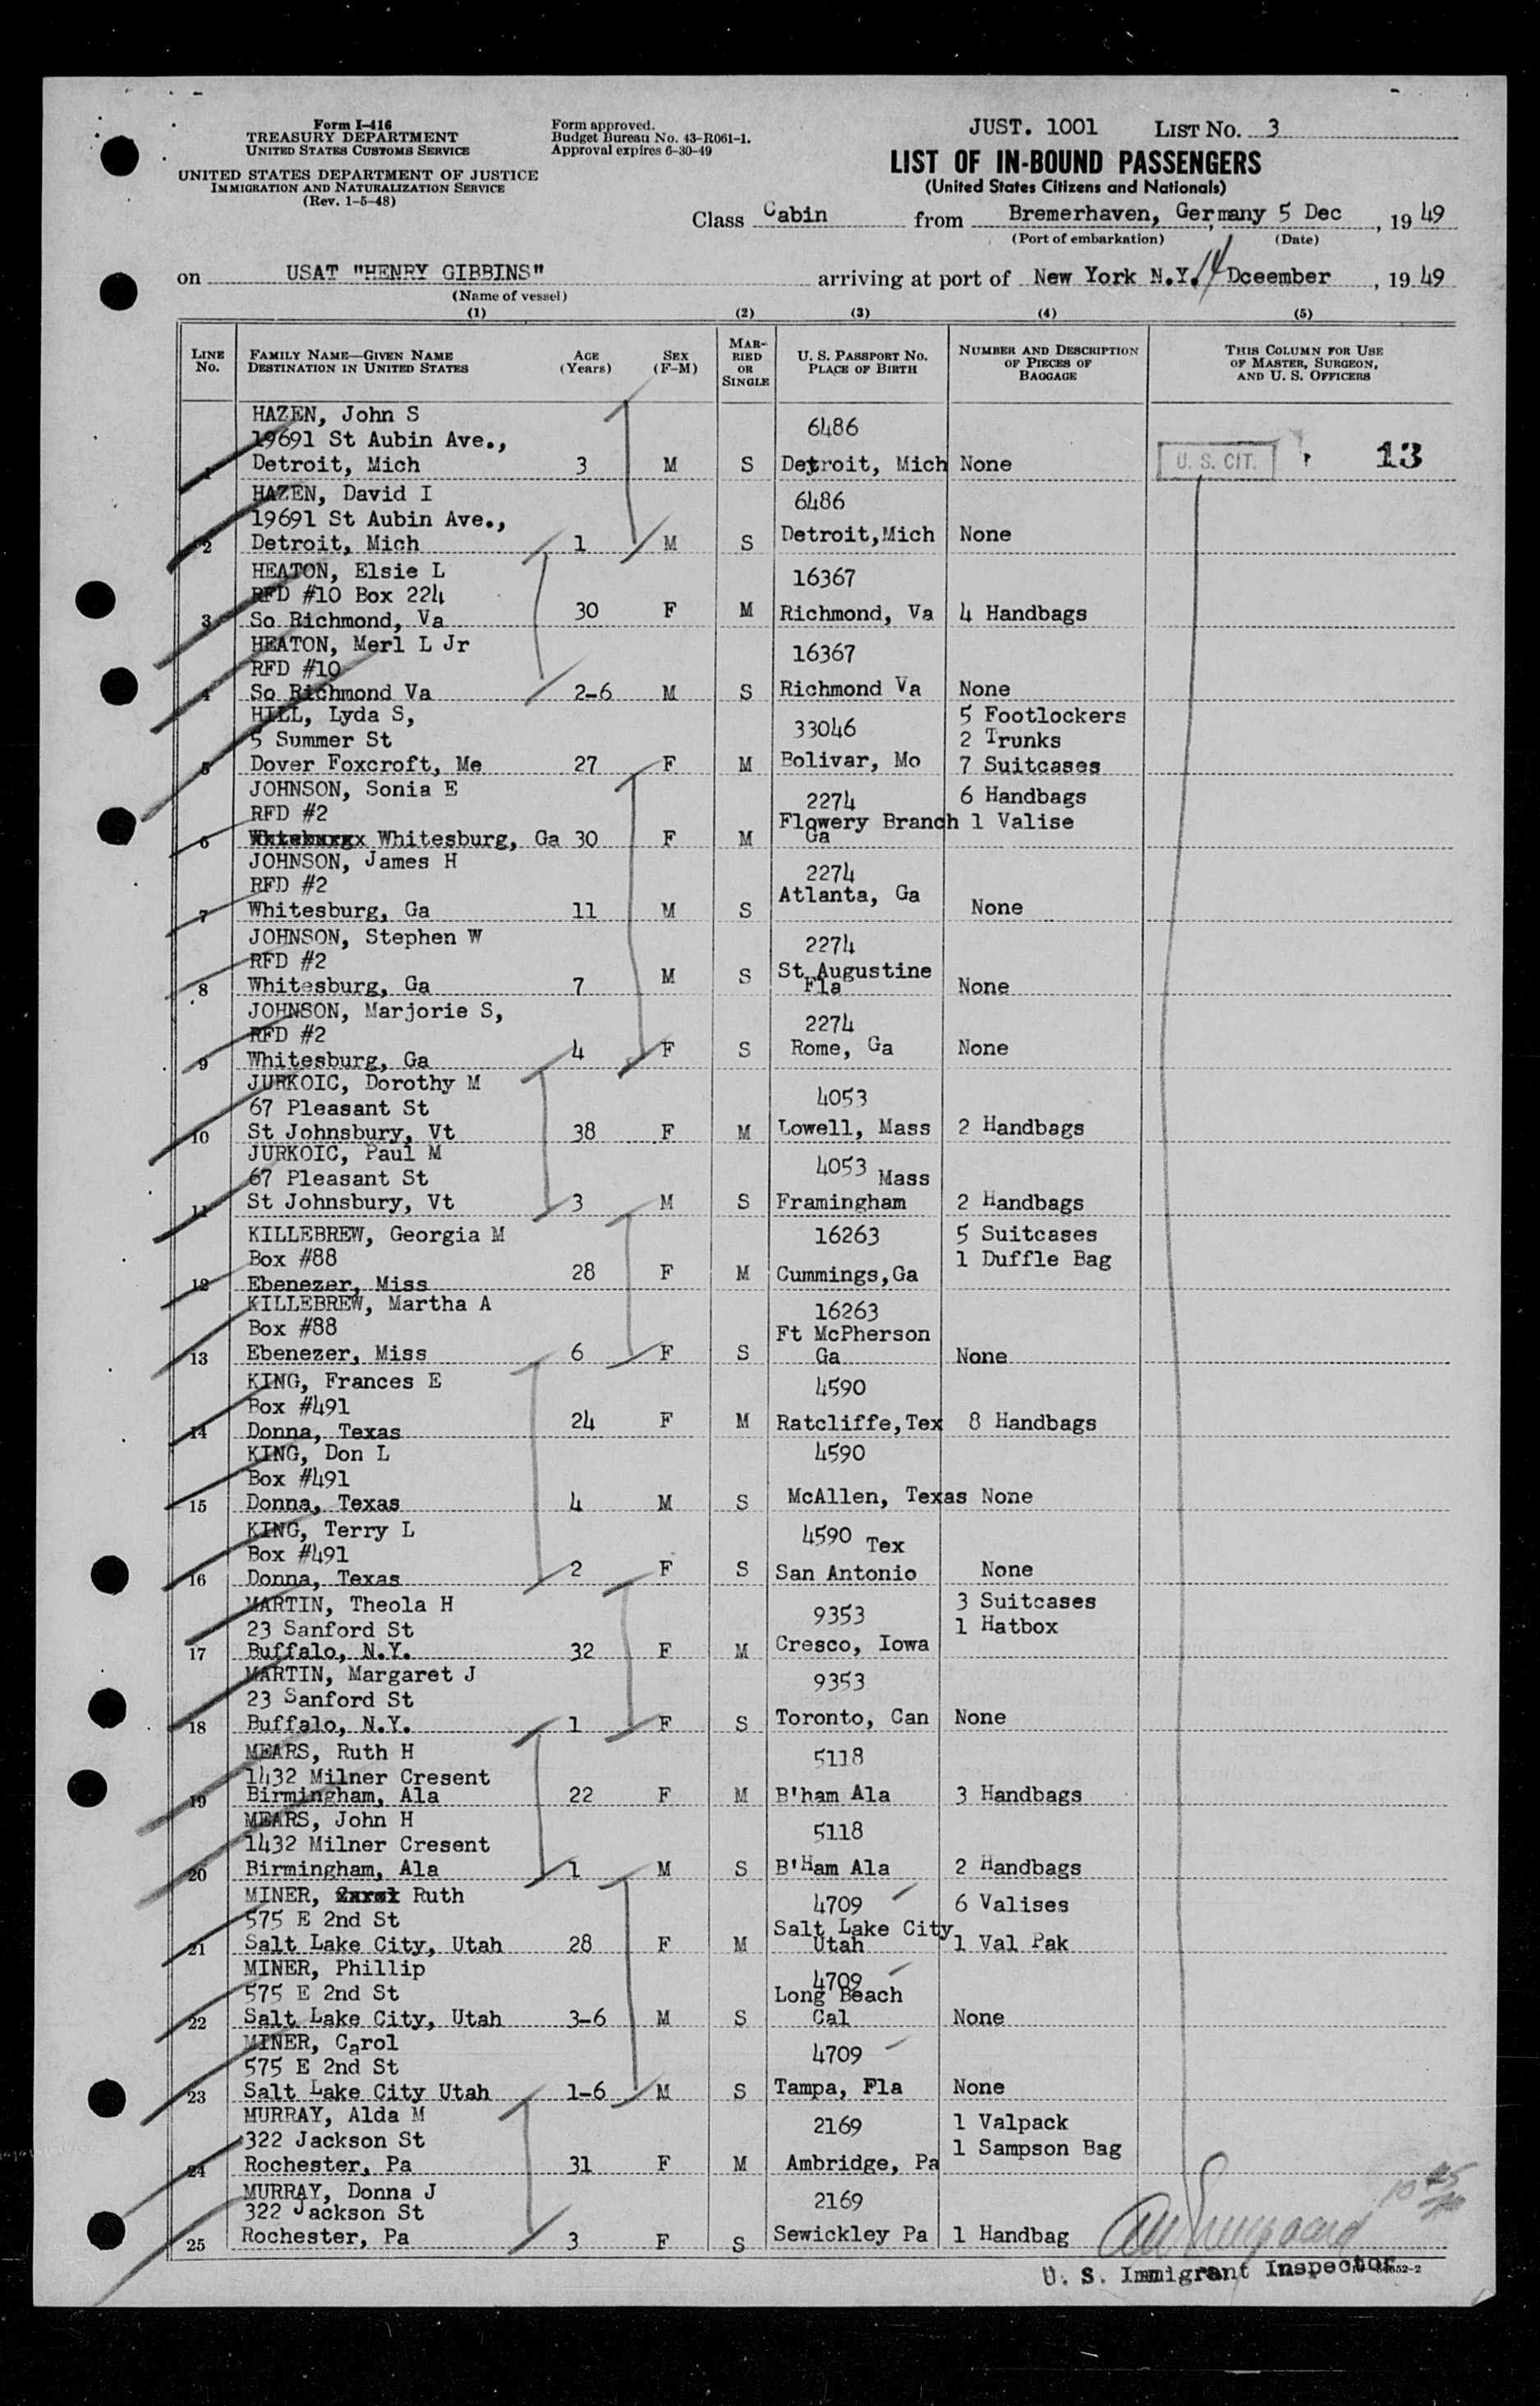 Form I-416
TREASURY DEPARTMENT
UNITED STATES CUSTOMS SERVICE
UNITED STATES DEPARTMENT OF JUSTICE
IMMIGRATION AND NATURALIZATION SERVICE
(Rev. 1-5-48)
Form approved.
Budget Bureau No. 43-R061-1.
Approval expires 6-30-49
JUST. 1001 LIST NO. 3
LIST OF IN-BOUND PASSENGERS
(United States Citizens and Nationals)
Class Cabin from Bremerhaven, Germany 5 Dec, 19 49
(Port of embarkation) (Date)
on USAT "HENRY GIBBINS" arriving at port of New York N.Y. 14 Dceember, 19 49
(Name of vessel)
(1) (2) (3) (4) (5)
LINE NO. FAMILY NAME—GIVEN NAME DESTINATION IN UNITED STATES AGE (Years) SEX (F-M) MARRIED OR SINGLE U. S. PASSPORT NO. PLACE OF BIRTH NUMBER AND DESCRIPTION OF PIECES OF BAGGAGE THIS COLUMN FOR USE OF MASTER, SURGEON, AND U. S. OFFICERS
HAZEN, John S 6486
19691 St Aubin Ave.,
1 Detroit, Mich 3 M S Detroit, Mich None U. S. CIT. 13
HAZEN, David I 6486
19691 St Aubin Ave.,
2 Detroit, Mich 1 M S Detroit,Mich None
HEATON, Elsie L 16367
RFD #10 Box 224
3 So Richmond, Va 30 F M Richmond, Va 4 Handbags
HEATON, Merl L Jr 16367
RFD #10
4 So Richmond Va 2-6 M S Richmond Va None
HILL, Lyda S, 5 Footlockers
5 Summer St 33046 2 Trunks
5 Dover Foxcroft, Me 27 F M Bolivar, Mo 7 Suitcases
JOHNSON, Sonia E 2274 6 Handbags
RFD #2 Flowery Branch 1 Valise
6 Whitesburg, Ga 30 F M Ga
JOHNSON, James H 2274
RFD #2 Atlanta, Ga
7 Whitesburg, Ga 11 M S None
JOHNSON, Stephen W 2274
RFD #2 St Augustine
8 Whitesburg, Ga 7 M S Fla None
JOHNSON, Marjorie S, 2274
RFD #2
9 Whitesburg, Ga 4 F S Rome, Ga None
JURKOIC, Dorothy M 4053
67 Pleasant St
10 St Johnsbury, Vt 38 F M Lowell, Mass 2 Handbags
JURKOIC, Paul M 4053
67 Pleasant St Mass
11 St Johnsbury, Vt 3 M S Framingham 2 Handbags
KILLEBREW, Georgia M 16263 5 Suitcases
Box #88 1 Duffle Bag
12 Ebenezer, Miss 28 F M Cummings,Ga
KILLEBREW, Martha A 16263
Box #88 Ft McPherson
13 Ebenezer, Miss 6 F S Ga None
KING, Frances E 4590
Box #491
14 Donna, Texas 24 F M Ratcliffe,Tex 8 Handbags
KING, Don L 4590
Box #491
15 Donna, Texas 4 M S McAllen, Texas None
KING, Terry L 4590
Box #491 Tex
16 Donna, Texas 2 F S San Antonio None
MARTIN, Theola H 9353 3 Suitcases
23 Sanford St 1 Hatbox
17 Buffalo, N.Y. 32 F M Cresco, Iowa
MARTIN, Margaret J 9353
23 Sanford St
18 Buffalo, N.Y. 1 F S Toronto, Can None
MEARS, Ruth H 5118
1432 Milner Cresent
19 Birmingham, Ala 22 F M B'ham Ala 3 Handbags
MEARS, John H 5118
1432 Milner Cresent
20 Birmingham, Ala 1 M S B'Ham Ala 2 Handbags
MINER, Ruth 4709 6 Valises
575 E 2nd St Salt Lake City
21 Salt Lake City, Utah 28 F M Utah 1 Val Pak
MINER, Phillip 4709
575 E 2nd St Long Beach
22 Salt Lake City, Utah 3-6 M S Cal None
MINER, Carol 4709
575 E 2nd St
23 Salt Lake City Utah 1-6 M S Tampa, Fla None
MURRAY, Alda M 2169 1 Valpack
322 Jackson St 1 Sampson Bag
24 Rochester, Pa 31 F M Ambridge, Pa
MURRAY, Donna J 2169
322 Jackson St
25 Rochester, Pa 3 F S Sewickley Pa 1 Handbag
U. S. Immigrant Inspector